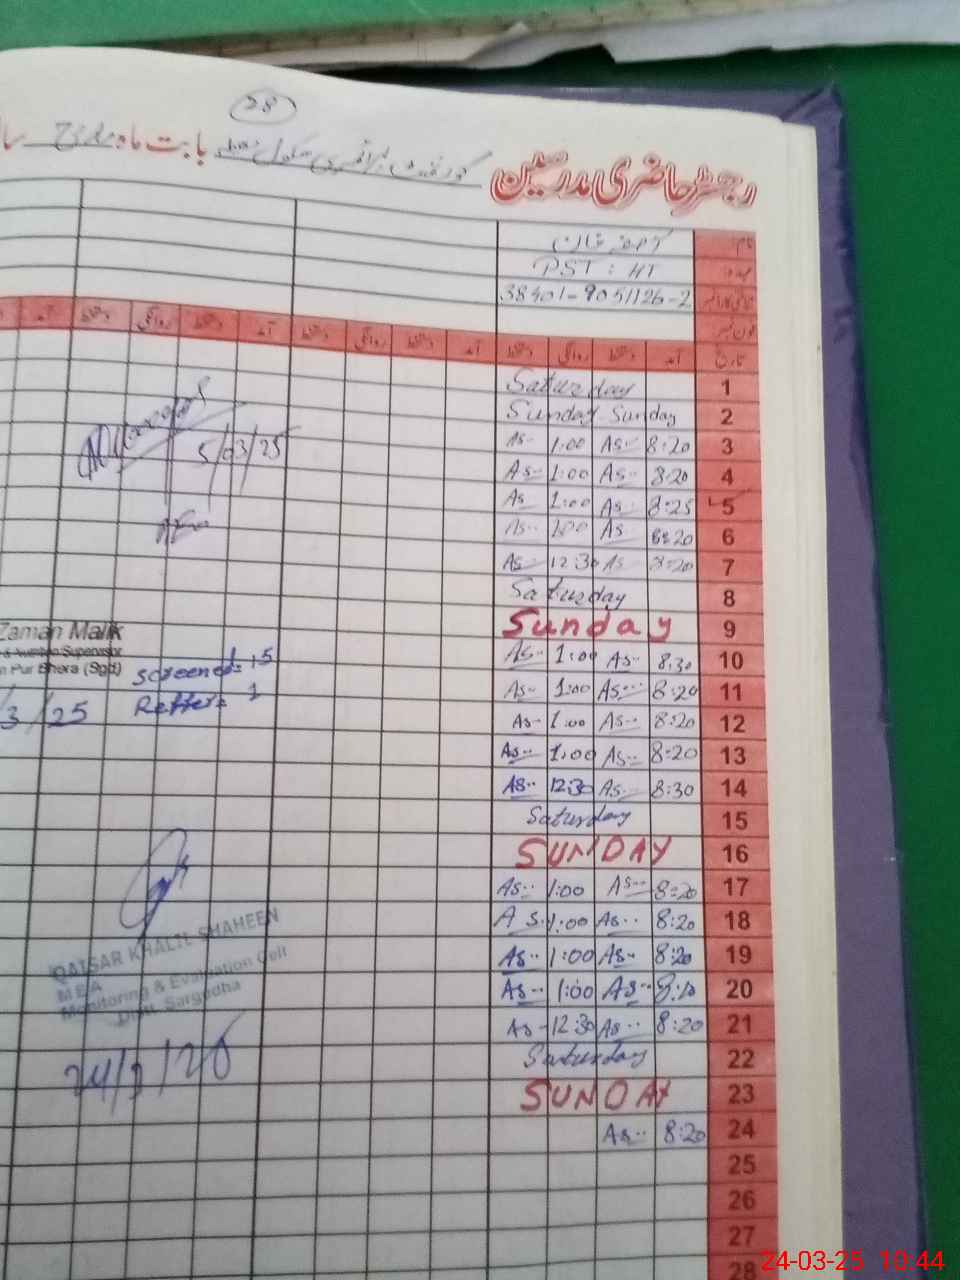 28
رجسٹر حاضری مدرسین گورنمنٹ پرائمری سکول بابت ماہ مارچ
نام:
عہدہ: PST : HT
38401-9051126-2
فون نمبر
تاریخ آمد دستخط روانگی دستخط آمد دستخط روانگی دستخط آمد دستخط روانگی دستخط آمد
Saturday 1
Sunday Sunday 2
As- 1:00 As- 8:20 3
As- 1:00 As- 8:20 4
As 1:00 As- 8:25 5
As- 1:00 As 8:20 6
As- 12:30 As 8:20 7
Saturday 8
Sunday 9
As- 1:00 As- 8:30 10
As- 1:00 As- 8:20 11
As- 1:00 As- 8:20 12
As- 1:00 As- 8:20 13
As- 12:30 As- 8:30 14
Saturday 15
SUNDAY 16
As- 1:00 As- 8:20 17
As. 1:00 As- 8:20 18
As- 1:00 As- 8:20 19
As- 1:00 As- 8:10 20
As- 12:30 As- 8:20 21
Saturday 22
SUNDAY 23
As- 8:20 24
25
26
27
28
5/03/25
AEO
Zaman Malik
& Nutrition Supervisor
n Pur Bhera (Sgd)
Screened= 15
Reffer= 1
3/25
QAISAR KHALIL SHAHEEN
MEA
Monitoring & Evaluation Cell
Distt. Sargodha
24-03-25 10:44